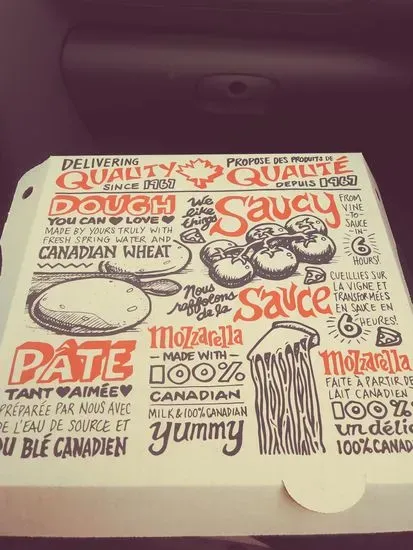 DELIVERING
QUALITY
SINCE 1967
PROPOSE DES PRODUITS DE
QUALITÉ
DEPUIS 1967
DOUGH
YOU CAN LOVE
MADE BY YOURS TRULY WITH
FRESH SPRING WATER AND
CANADIAN WHEAT
We
like
things
Saucy
FROM
VINE
-TO-
SAUCE
-IN-
6
HOURS!
Nous
raffolons
de la
Sauce
CUEILLIES SUR
LA VIGNE ET
TRANSFORMÉES
EN SAUCE EN
6
HEURES!
PÂTE
TANT AIMÉE
PRÉPARÉE PAR NOUS AVEC
DE L'EAU DE SOURCE ET
DU BLÉ CANADIEN
Mozzarella
- MADE WITH -
100%
CANADIAN
MILK & 100% CANADIAN
yummy
Mozzarella
FAITE À PARTIR D
LAIT CANADIEN
100%
un délic
100% CANAD